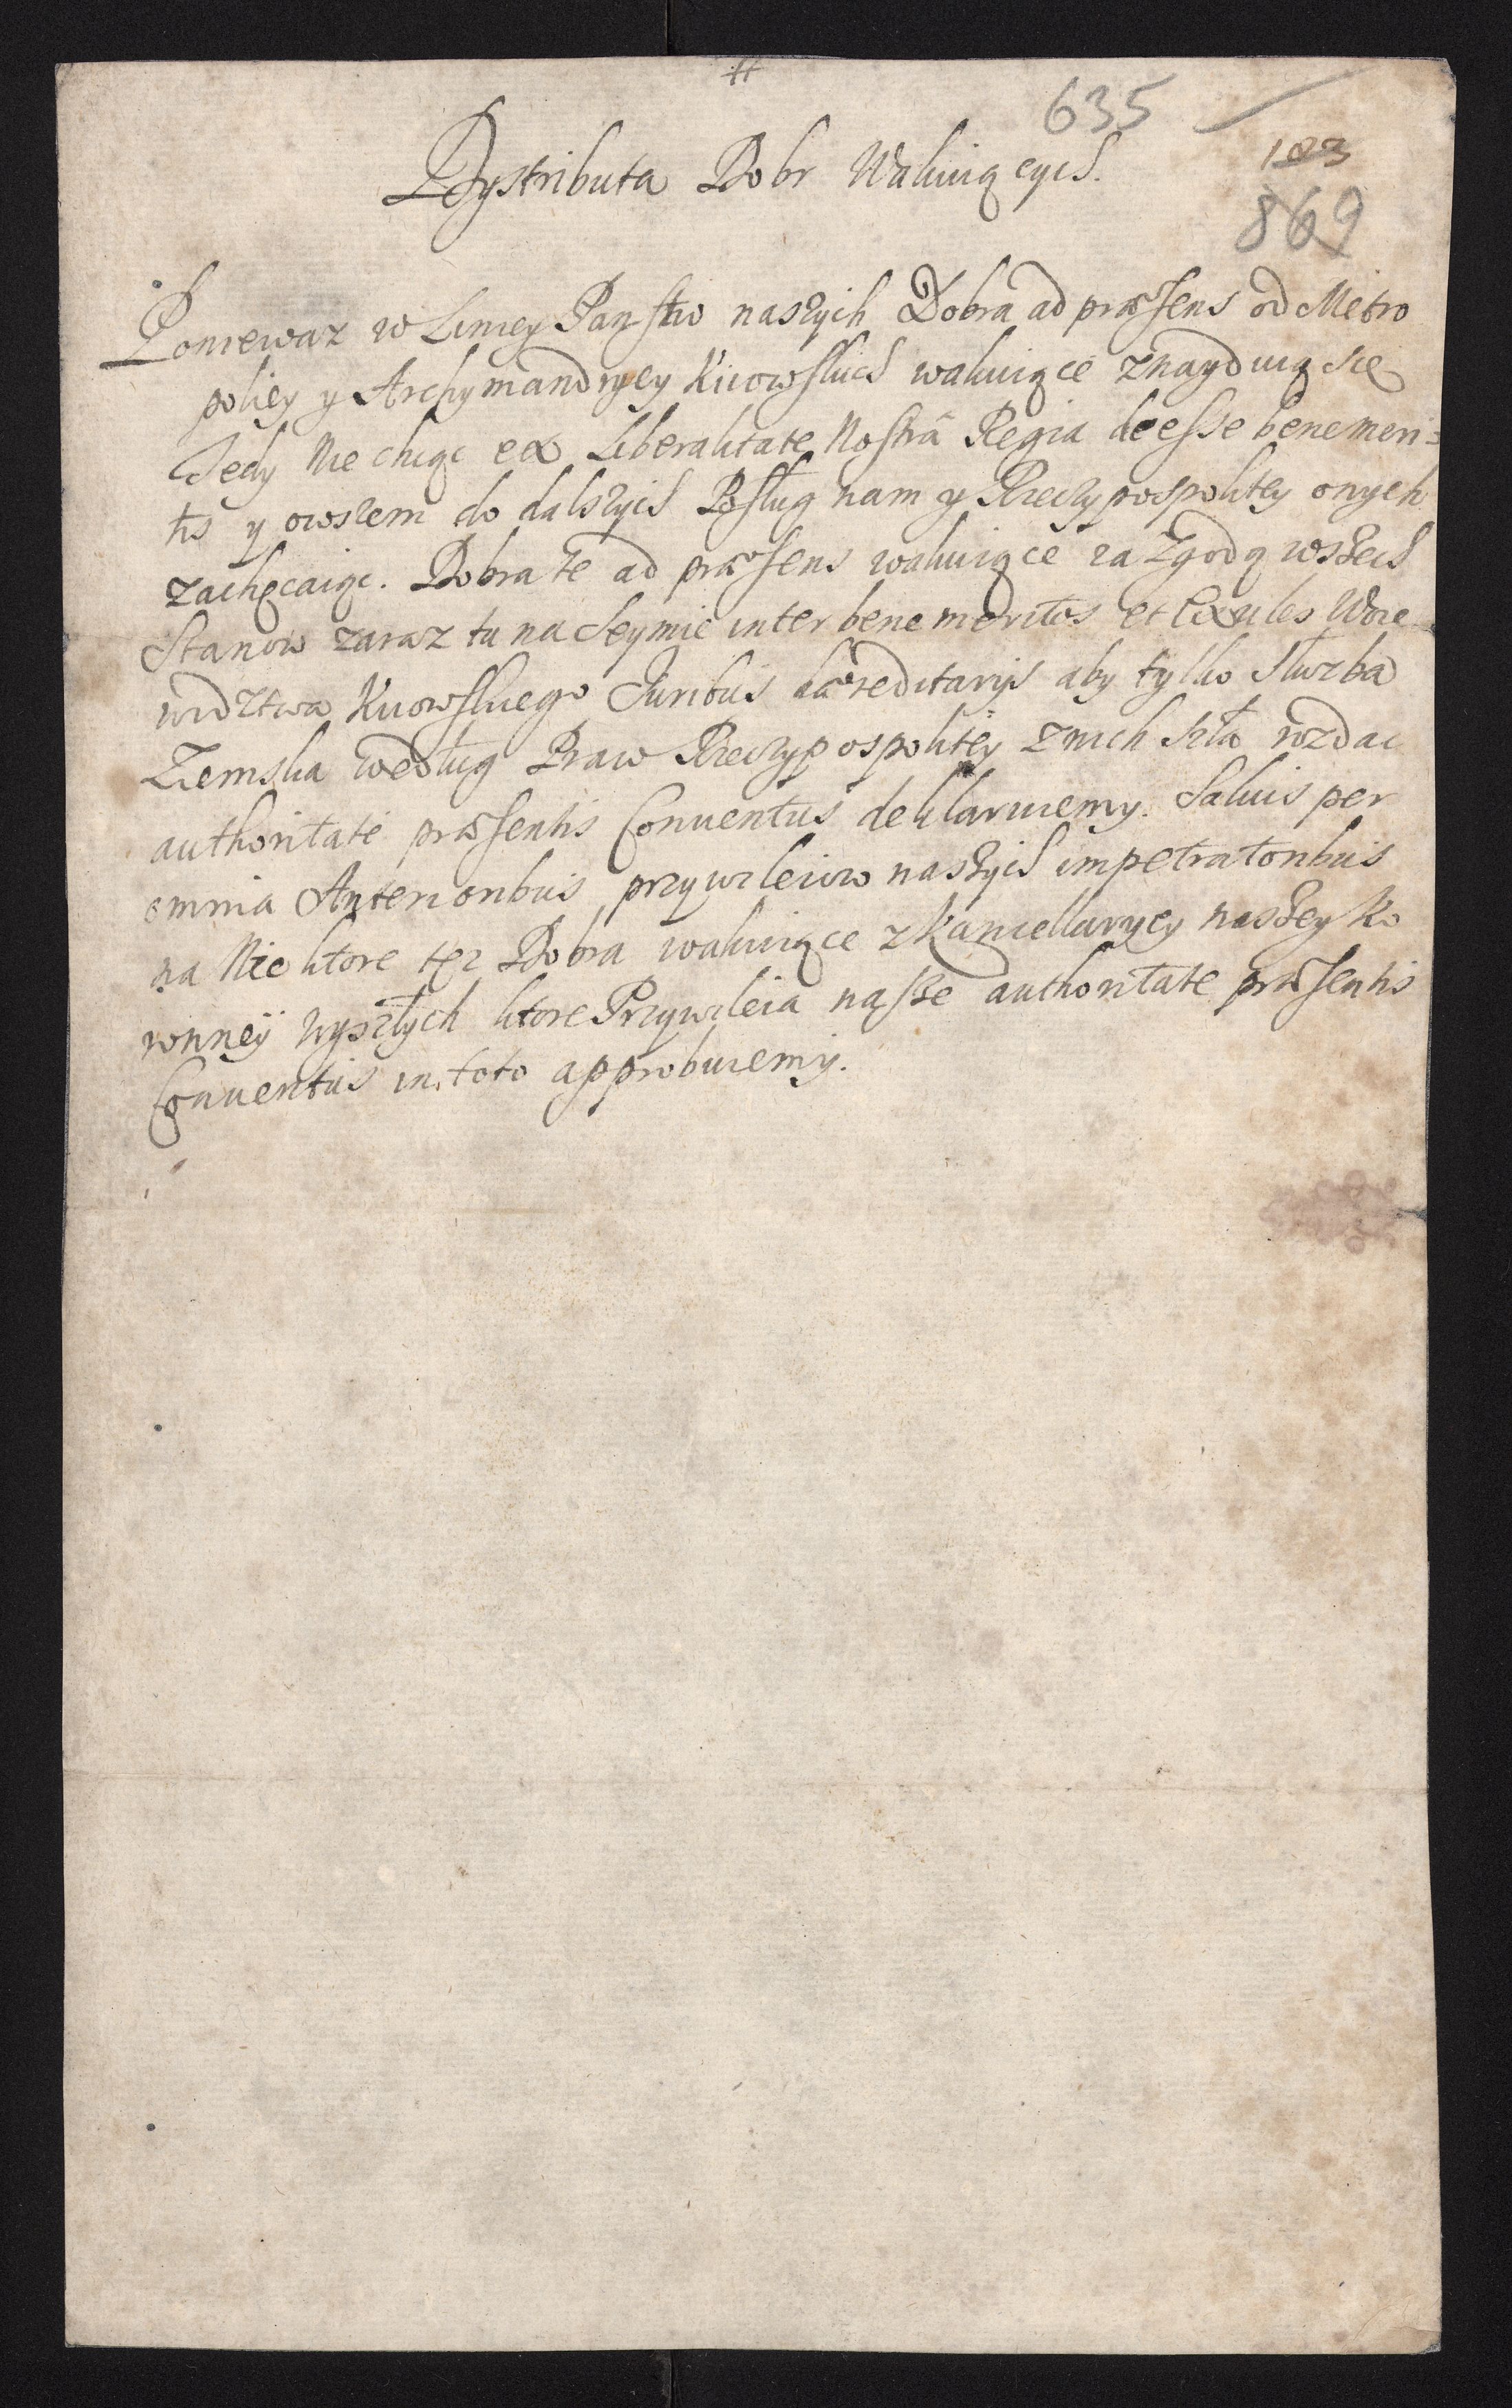 #
635
183
869
Dystributa Dobr Wakuiących.
Poniewaz w Liniey Panstw naszych Dobra ad præsens od Metro
poliey y Archymandryey Kiiowskich wakuiące znayduią się
Tedy Nie chcąc ex Liberalitate Nostrâ Regia deesse benemeri=
tis y owszem do dalszych Posług nam y Rzeczypospolitey onych
zachęcaiąc. Dobra te ad præsens wakuiące za Zgodą wszech
Stanow zaraz tu na Seymie inter bene meritos et Exules Woie
wodztwa Kiiowskiego Juribus hæreditarijs aby tylko Służba
Ziemska według Praw Rzeczypospolitey z nich szła rozdac
authoritate præsentis Conventus deklaruiemy. Salvis per
omnia Anterioribus przywileiow naszych impetratoribus
na Niektore tez Dobra wakuiące z Kancellaryey naszey Ko
ronney wyszłych ktore Przywileia nasze authoritate præsentis
Conventus in toto approbuiemy.